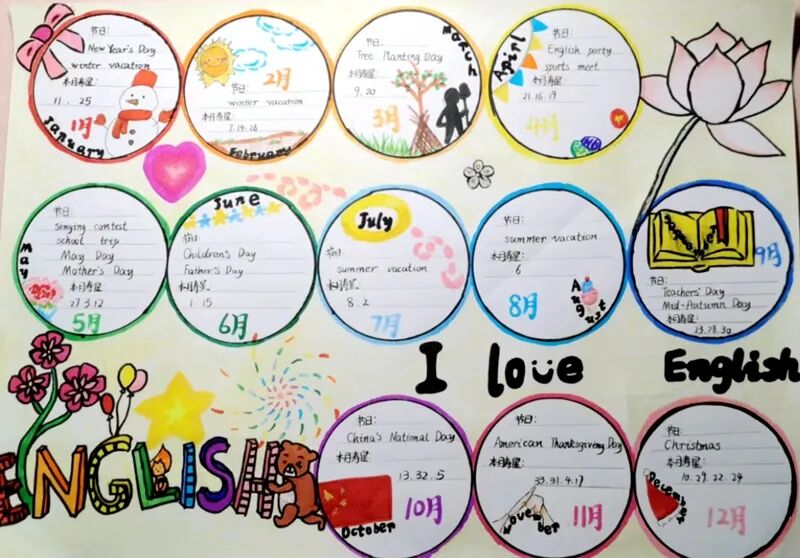 节日:
New Year's Day
winter vacation
本月寿星:
11. 25
1月
January
2月
节日:
winter vacation
本月寿星:
7.19.26
February
March
节日:
Tree Planting Day
本月寿星:
9.20
3月
Apirl
节日:
English party
sports meet
本月寿星:
21.16.19
4月
May
节日:
singing contest
school trip
May Day
Mother's Day
本月寿星
27.3.12
5月
June
节日:
Children's Day
Father's Day
本月寿星:
1.15
6月
July
节日:
summer vacation
本月寿星:
8.2
7月
节日:
summer vacation
本月寿星:
6
8月
August
9月
节日:
Teachers' Day
Mid-Autumn Day
本月寿星:
23.28.30
I love English
ENGLISH
节日:
China's National Day
本月寿星:
13.32.5
10月
October
节日:
American Thanksgiving Day
本月寿星:
33.31.4.17
11月
November
节日:
Christmas
本月寿星:
10.29.22.24
December
12月